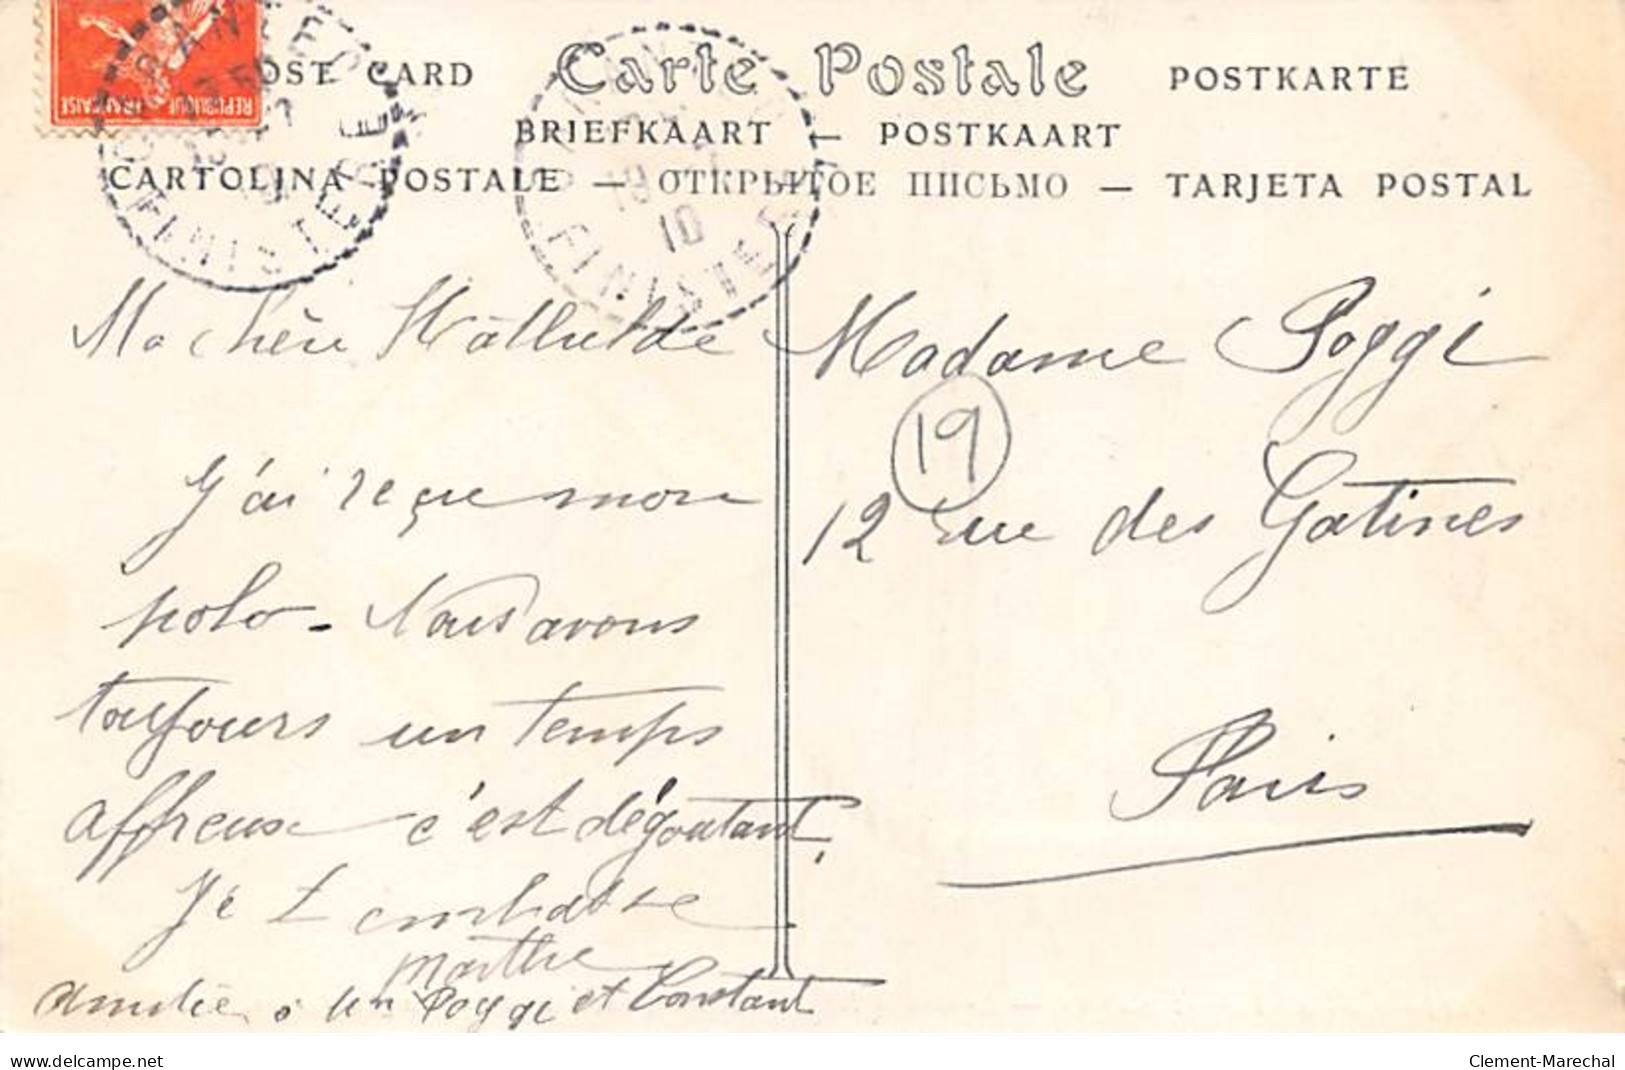 REPUBLIQUE FRANÇAISE
POST CARD Carte Postale POSTKARTE
BRIEFKAART — POSTKAART
CARTOLINA POSTALE — ОТКРЫТОЕ ПИСЬМО — TARJETA POSTAL
FINISTERE
10
FINISTERE
Ma chère Mathilde
J'ai reçue mon
polo - Nous avons
toujours un temps
affreux c'est dégoutant,
Je t embrasse
Marthe
Amitiés à Poggi et Constant
Madame Poggi
19
12 rue des Gatines
Paris
www.delcampe.net
Clement-Marechal